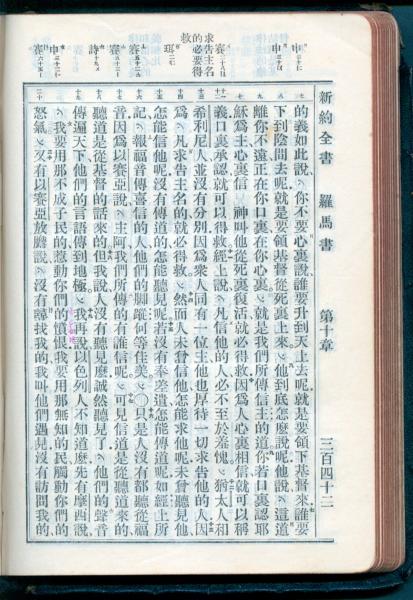 新約全書 羅馬書 第十章 三百四十二
的義如此說你不要心裏說誰要升到天上去呢就是要領基督下來誰要
下到陰間去呢就是要領基督從死裏上來他到底怎麼說呢他說這道
離你不遠正在你口裏在你心裏就是我們所傳信主的道你若口裏認耶
穌爲主心裏信 神叫他從死裏復活就必得救因爲人心裏相信就可以稱
義口裏承認就可以得救經上說凡信他的人必不至於羞愧猶太人和
希利尼人並沒有分別因爲衆人同有一位主他也厚待一切求告他的人因
爲凡求告主名的就必得救然而人未曾信他怎能求他呢未曾聽見他
怎能信他呢沒有傳道的怎能聽見呢若沒有奉差遣怎能傳道呢如經上所
記報福音傳喜信的人他們的脚蹤何等佳美〇只是人沒有都聽從福
音因爲以賽亞說主阿我們所傳的有誰信呢可見信道是從聽道來的
聽道是從基督的話來的但我說人沒有聽見麼誠然聽見了他們的聲音
傳遍天下他們的言語傳到地極我再說以色列人不知道麼先有摩西說
我要用那不成子民的惹動你們的憤恨我要用那無知的民觸動你們的
怒氣又有以賽亞放膽說沒有尋找我的我叫他們遇見沒有訪問我的
求告主名
的必要得
救